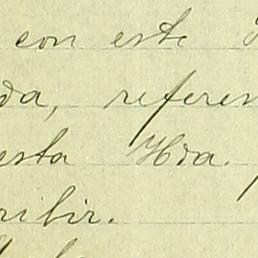 con este
da, referen
esta Hda.
ribir.